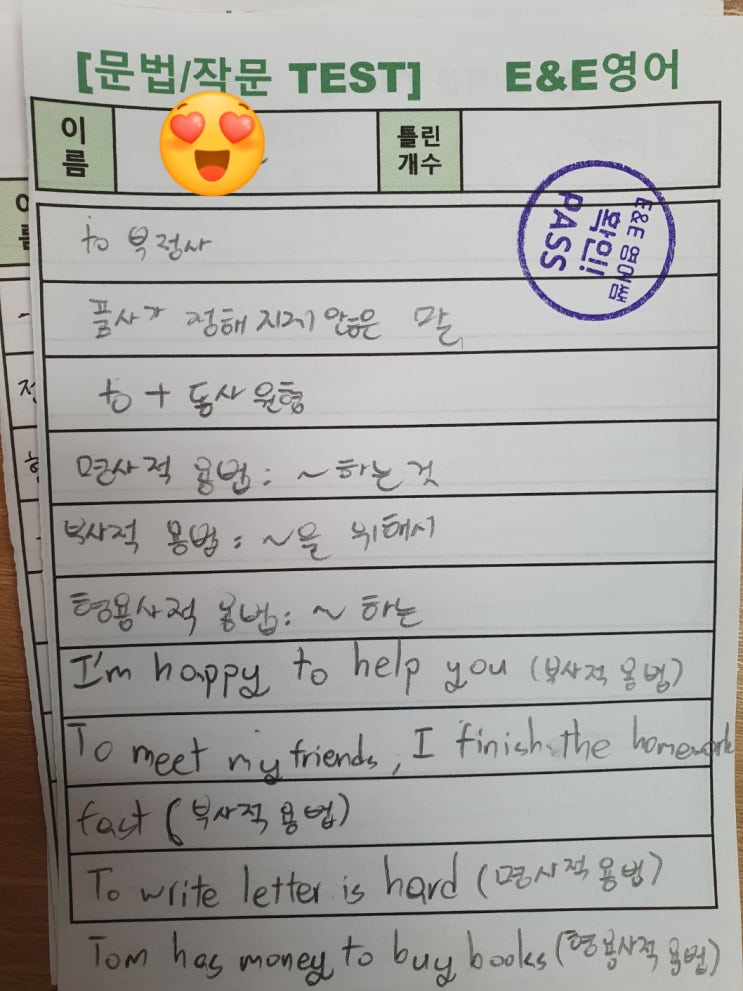 [문법/작문 TEST] E&E영어
이름
틀린개수
E&E 영어쌤
확인!!
PASS
to 부정사
품사가 정해 지지 않은 말
to + 동사 원형
명사적 용법: ~하는 것
부사적 용법: ~을 위해서
형용사적 용법: ~ 하는
I'm happy to help you (부사적 용법)
To meet my friends, I finish the homework
fast (부사적 용법)
To write letter is hard (명사적 용법)
Tom has money to buy books (형용사적 용법)